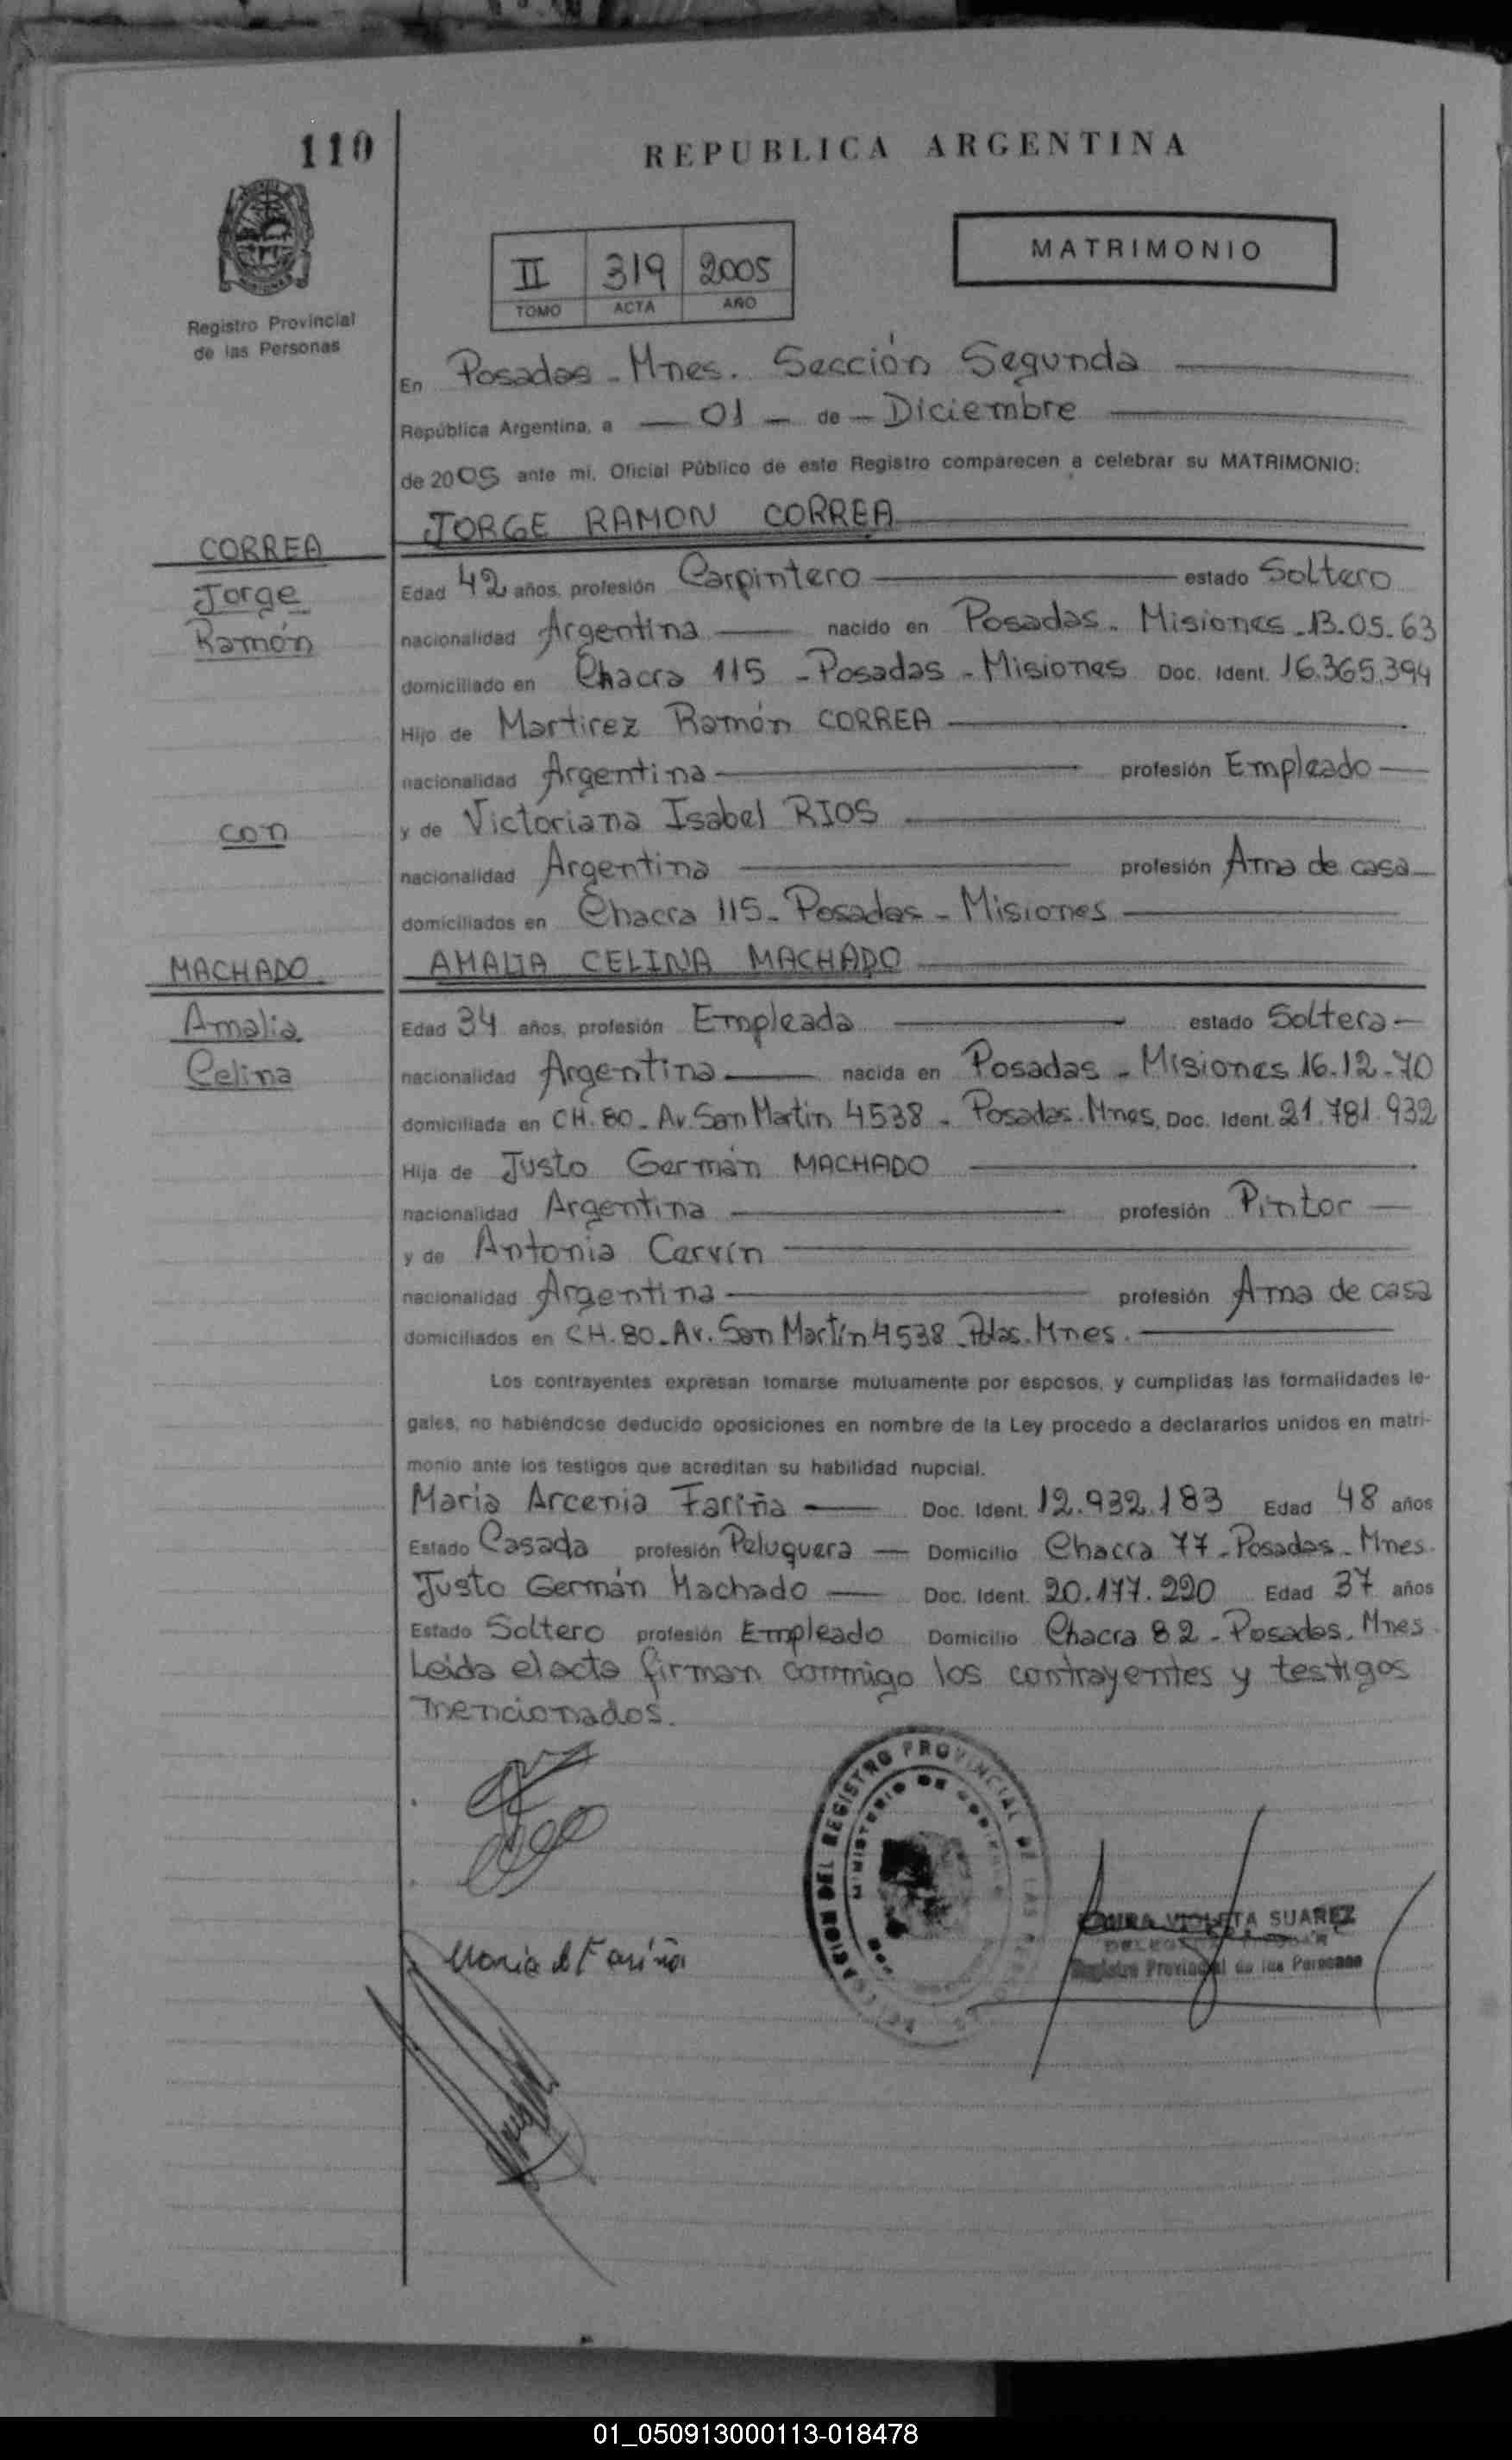 110
REPUBLICA ARGENTINA
MATRIMONIO
II 319 2005
TOMO ACTA AÑO
Registro Provincial
de las Personas
En Posadas - Mnes. Sección Segunda
República Argentina, a 01 - de - Diciembre
de 2005 ante mi, Oficial Público de este Registro comparecen a celebrar su MATRIMONIO:
JORGE RAMON CORREA
CORREA
Jorge
Ramón
Edad 42 años, profesión Carpintero estado Soltero
nacionalidad Argentina nacido en Posadas - Misiones - 13.05.63
domiciliado en Chacra 115 - Posadas - Misiones Doc. Ident. 16.365.394
Hijo de Martirez Ramón CORREA
nacionalidad Argentina profesión Empleado
con
y de Victoriana Isabel RIOS
nacionalidad Argentina profesión Ama de casa
domiciliados en Chacra 115 - Posadas - Misiones
AMALIA CELINA MACHADO
MACHADO
Amalia
Celina
Edad 34 años, profesión Empleada estado Soltera
nacionalidad Argentina nacida en Posadas - Misiones 16-12-70
domiciliada en CH. 80 - Av. San Martin 4538 - Posadas. Mnes, Doc. Ident. 21.781.932
Hija de Justo Germán MACHADO
nacionalidad Argentina profesión Pintor
y de Antonia Carvín
nacionalidad Argentina profesión Ama de casa
domiciliados en CH. 80 - Av. San Martín 4538 - Pdas. Mnes.
Los contrayentes expresan tomarse mutuamente por esposos, y cumplidas las formalidades le-
gales, no habiéndose deducido oposiciones en nombre de la Ley procedo a declararlos unidos en matri-
monio ante los testigos que acreditan su habilidad nupcial.
Maria Arcenia Fariña Doc. Ident. 12.932.183 Edad 48 años
Estado Casada profesión Peluquera Domicilio Chacra 77 - Posadas - Mnes.
Justo Germán Machado Doc. Ident. 20.177.220 Edad 37 años
Estado Soltero profesión Empleado Domicilio Chacra 82 - Posadas. Mnes.
Leida el acta firman conmigo los contrayentes y testigos
mencionados.
DEL REGISTRO PROVINCIAL DE LAS
MINISTERIO DE
Maria A Fariña
VIOLETA SUAREZ
Registro Provincial de las Personas
01_050913000113-018478